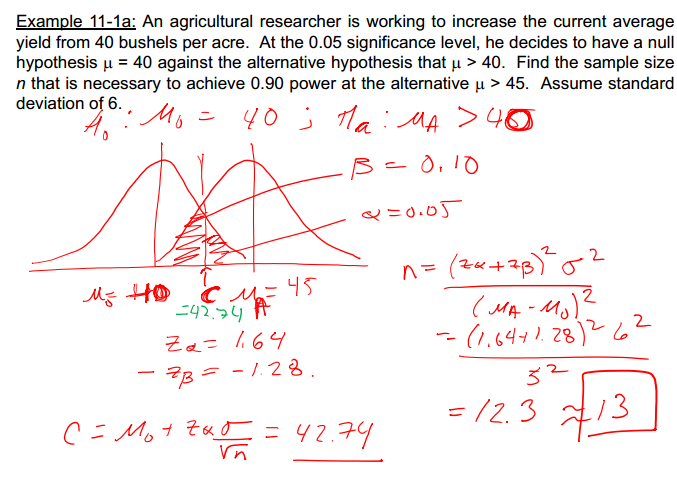 Example 11-1a: An agricultural researcher is working to increase the current average
yield from 40 bushels per acre. At the 0.05 significance level, he decides to have a null
hypothesis μ = 40 against the alternative hypothesis that μ > 40. Find the sample size
n that is necessary to achieve 0.90 power at the alternative μ > 45. Assume standard
deviation of 6.
H₀ : M₀ = 40 ; Ha : MA > 40
β = 0.10
α = 0.05
M₀ = 40 C MA = 45
=42.74
Zα = 1.64
- Zβ = -1.28.
C = M₀ + Zα σ/√n = 42.74
n = (Zα + Zβ)² σ² / (MA - M₀)²
= (1.64 + 1.28)² 6² / 5²
= 12.3 ≈ 13